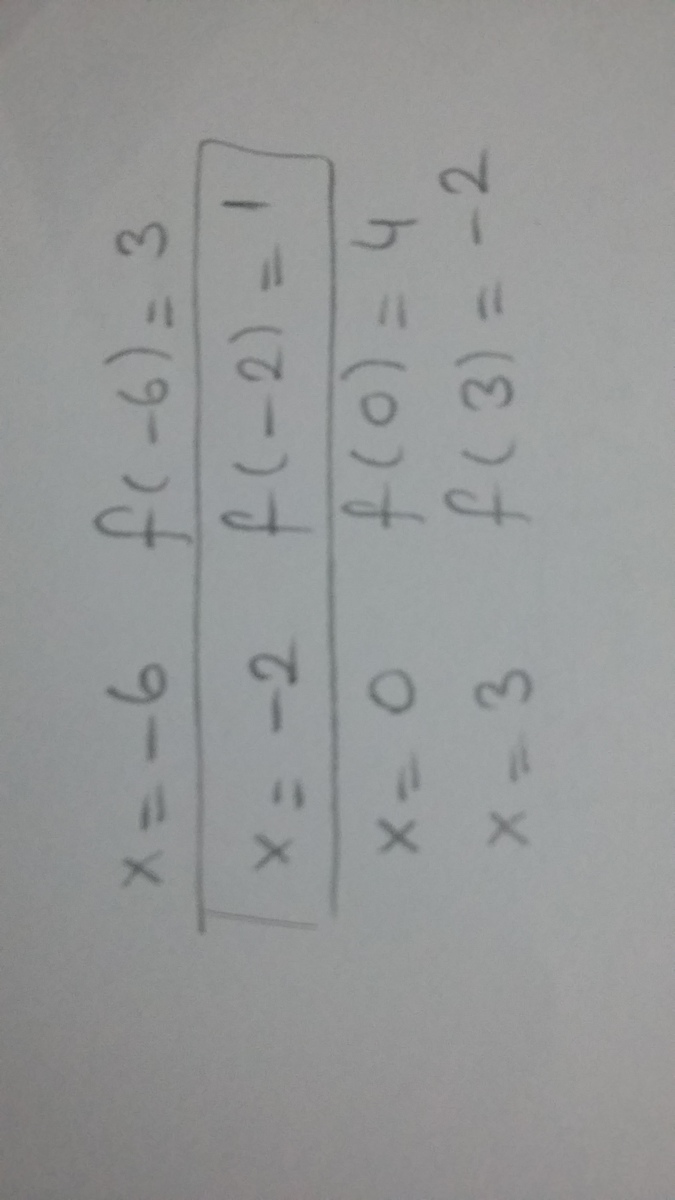 x = -6 f(-6) = 3
x = -2 f(-2) = 1
x = 0 f(0) = 4
x = 3 f(3) = -2